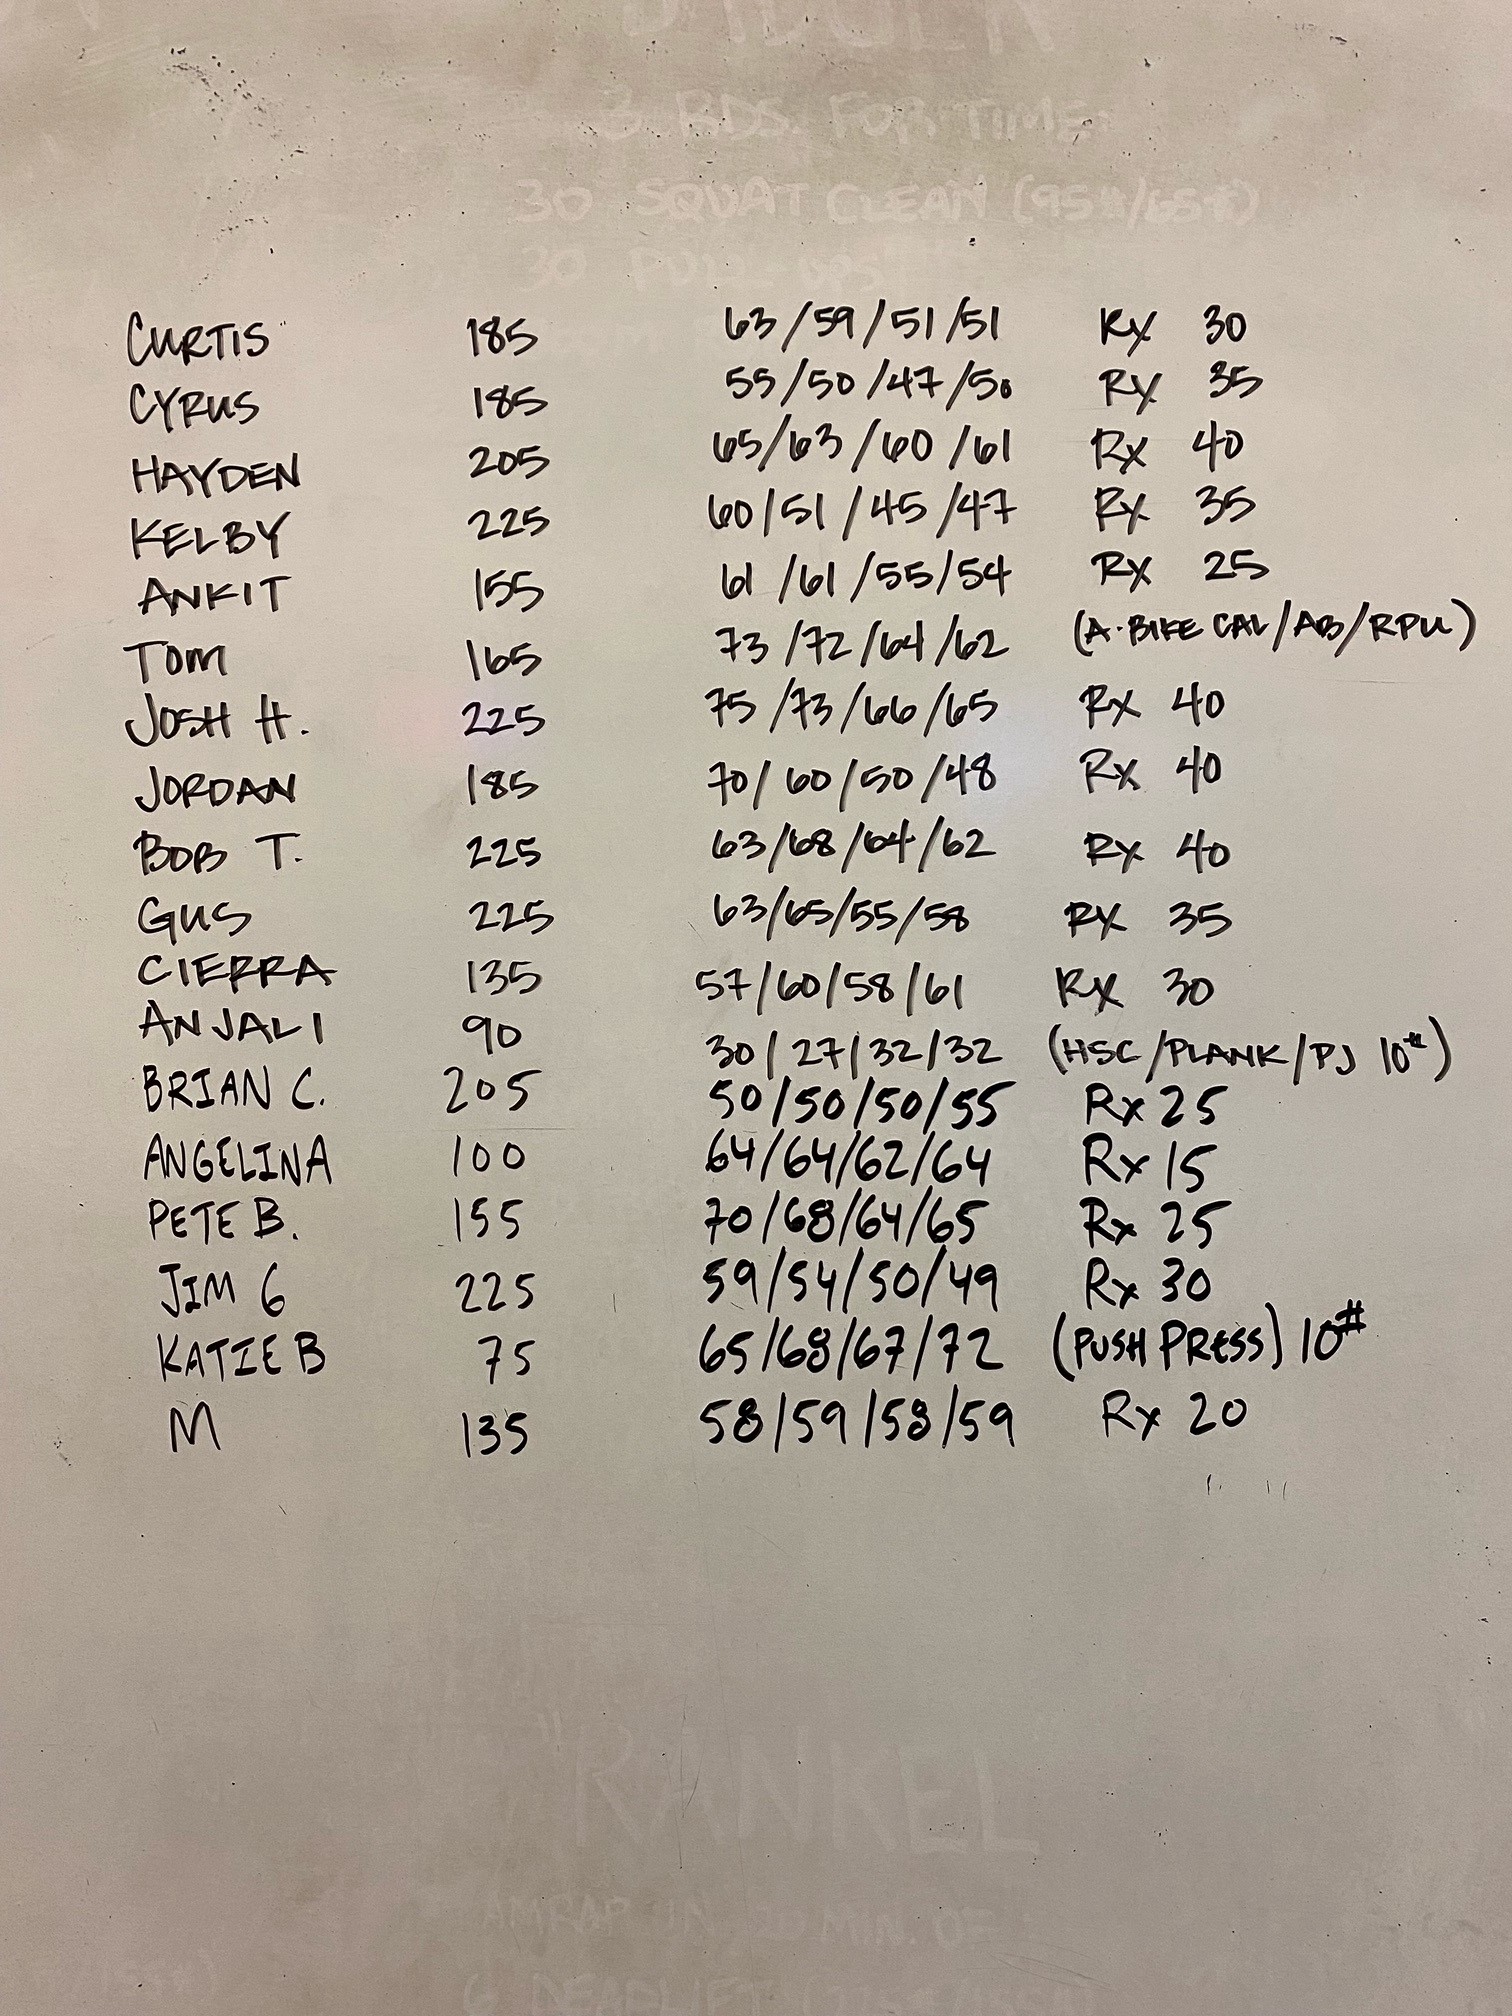 3 RDS. FOR TIME:
30 SQUAT CLEAN (95#/65#)
30 PULL-UPS
CURTIS 185 63/59/51/51 Rx 30
CYRUS 185 55/50/47/50 Rx 35
HAYDEN 205 65/63/60/61 Rx 40
KELBY 225 60/51/45/47 Rx 35
ANKIT 155 61/61/55/54 Rx 25
TOM 165 73/72/64/62 (A.BIKE CAL/AB/RPU)
JOSH H. 225 75/73/66/65 Rx 40
JORDAN 185 70/60/50/48 Rx 40
BOB T. 225 63/68/64/62 Rx 40
GUS 225 63/65/55/58 Rx 35
CIERRA 135 57/60/58/61 Rx 30
ANJALI 90 30/27/32/32 (HSC/PLANK/PJ 10#)
BRIAN C. 205 50/50/50/55 Rx 25
ANGELINA 100 64/64/62/64 Rx 15
PETE B. 155 70/68/64/65 Rx 25
JIM G 225 59/54/50/49 Rx 30
KATIE B 75 65/68/67/72 (PUSH PRESS) 10#
M 135 58/59/58/59 Rx 20
"RANKEL"
AMRAP IN 20 MIN. OF:
6 DEADLIFT